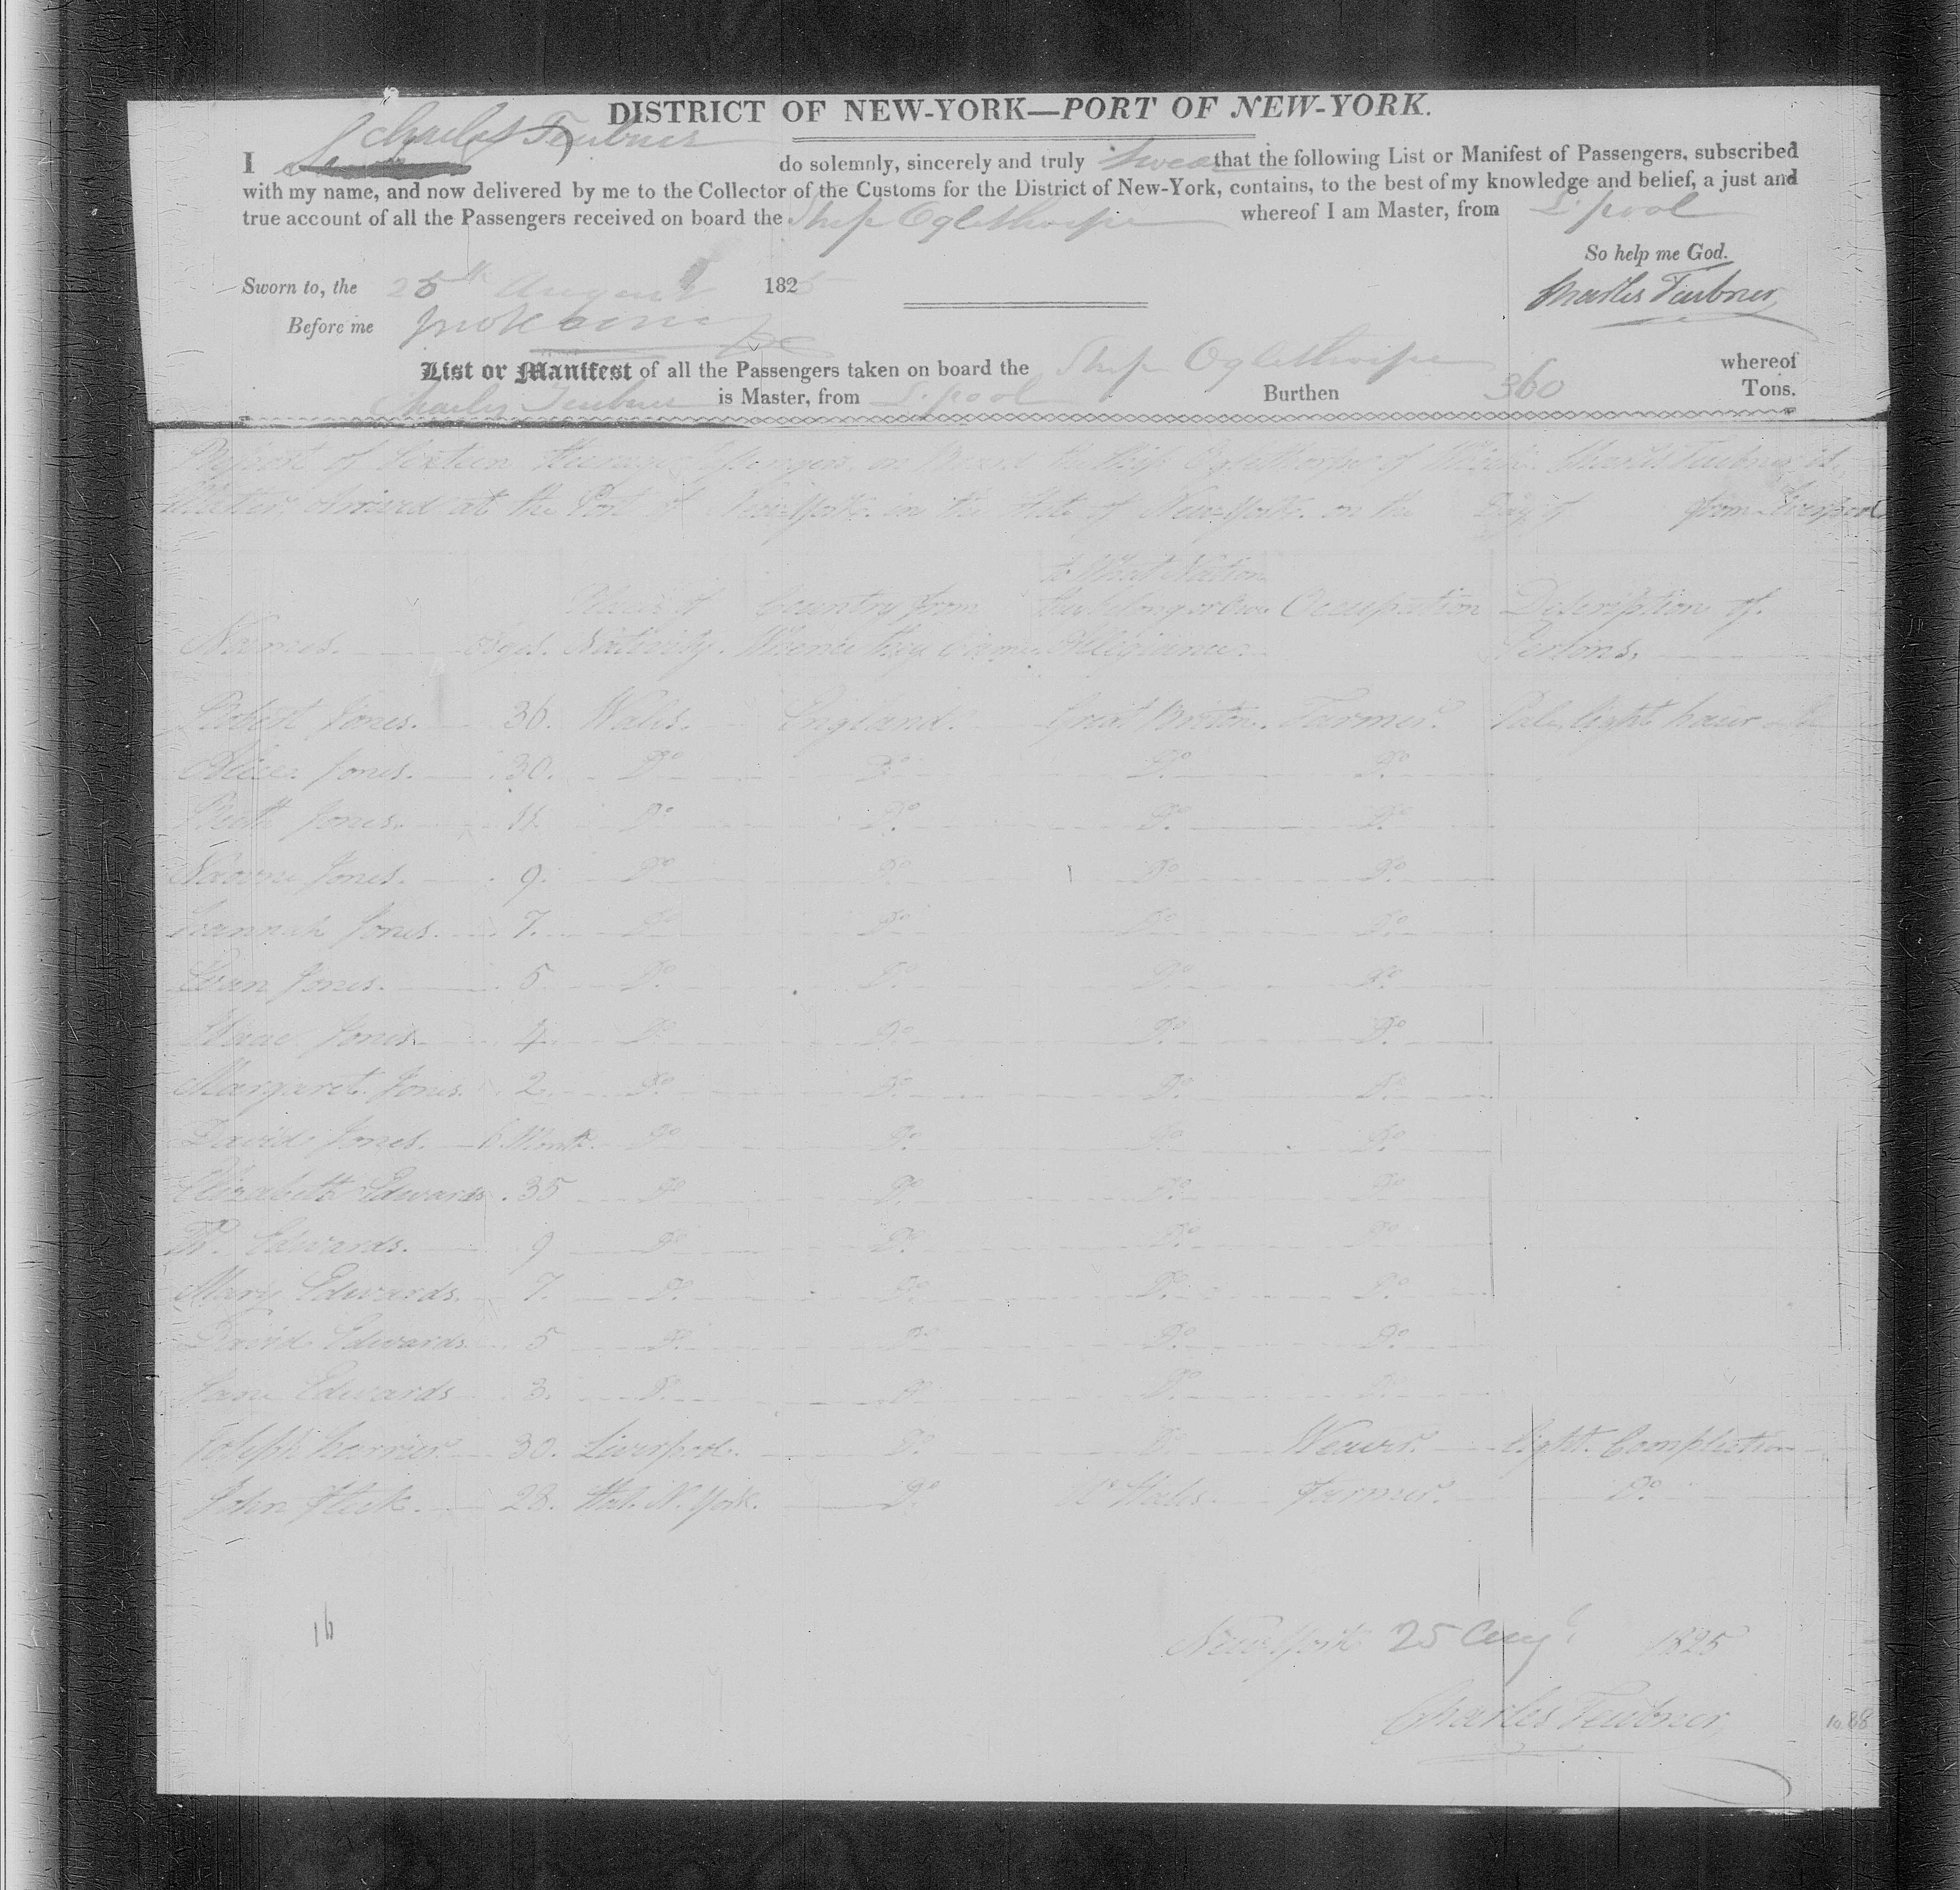 DISTRICT OF NEW-YORK—PORT OF NEW-YORK.
I Charles Teubner do solemnly, sincerely and truly swear that the following List or Manifest of Passengers, subscribed
with my name, and now delivered by me to the Collector of the Customs for the District of New-York, contains, to the best of my knowledge and belief, a just and
true account of all the Passengers received on board the Ship Oglethorpe whereof I am Master, from L.pool
So help me God.
Sworn to, the 25th August 1825
Charles Teubner
Before me
List or Manifest of all the Passengers taken on board the Ship Oglethorpe whereof
Charles Teubner is Master, from L.pool Burthen 360 Tons.
Report of Sixteen Steerage Passengers on Board the Ship Oglethorpe of Which Charles Teubner is
Master Arrived at the Port of New-York in the State of New-York on the Day of from Liverpool
to What Nation
Place of Country from they belong or Owe Occupation Description of
Names. Ages. Nativity. Whence they Came Allegiance. Persons.
Robert Jones. 36. Wales. England. Great Briton. Farmer. Pale, light hair
Alice Jones. 30. Do Do Do Do
Jones. 11. Do Do Do Do
Jones. 9. Do Do Do Do
Hannah Jones. 7. Do Do Do Do
Evan Jones. 5 Do Do Do Do
Jones. 4 Do Do Do Do
Margaret Jones. 2 Do Do Do Do
David Jones. 6 Month. Do Do Do Do
Elizabeth Edwards. 35 Do Do Do Do
Edwards. 9 Do Do Do Do
Mary Edwards. 7. Do Do Do Do
David Edwards. 5 Do Do Do Do
Jane Edwards 3. Do Do Do Do
Joseph 30. Liverpool. Do Do Weaver. light Complection
John 28. Stat. N. York. Do Farmer. Do
16
New York 25 Augt 1825
Charles Teubner